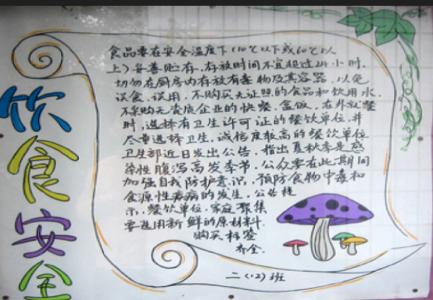 饮食安全
食品要在安全温度下(10℃以下或60℃以
上)妥善贮存,存放时间不宜超过24小时,
切勿在厨房内存放有毒物及其容器,以免
误食、误用,不购买无证照的食品和饮用水,
不采购无资质企业的快餐、盒饭,在外就餐
时,选择有卫生许可证的餐饮单位,并
尽量选择卫生,诚信度较高的餐饮单位
卫生部近日发出公告,指出夏秋季是感
染性腹泻高发季节,公众要在此期间
加强自我防护意识,预防食物中毒和
食源性疾病的发生,公告提
示,餐饮单位、家庭聚集
要选用新鲜的原材料,
购买标签
齐全.
二(12)班